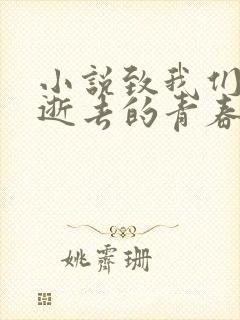 小說致我们
逝去的青春
姚霽珊